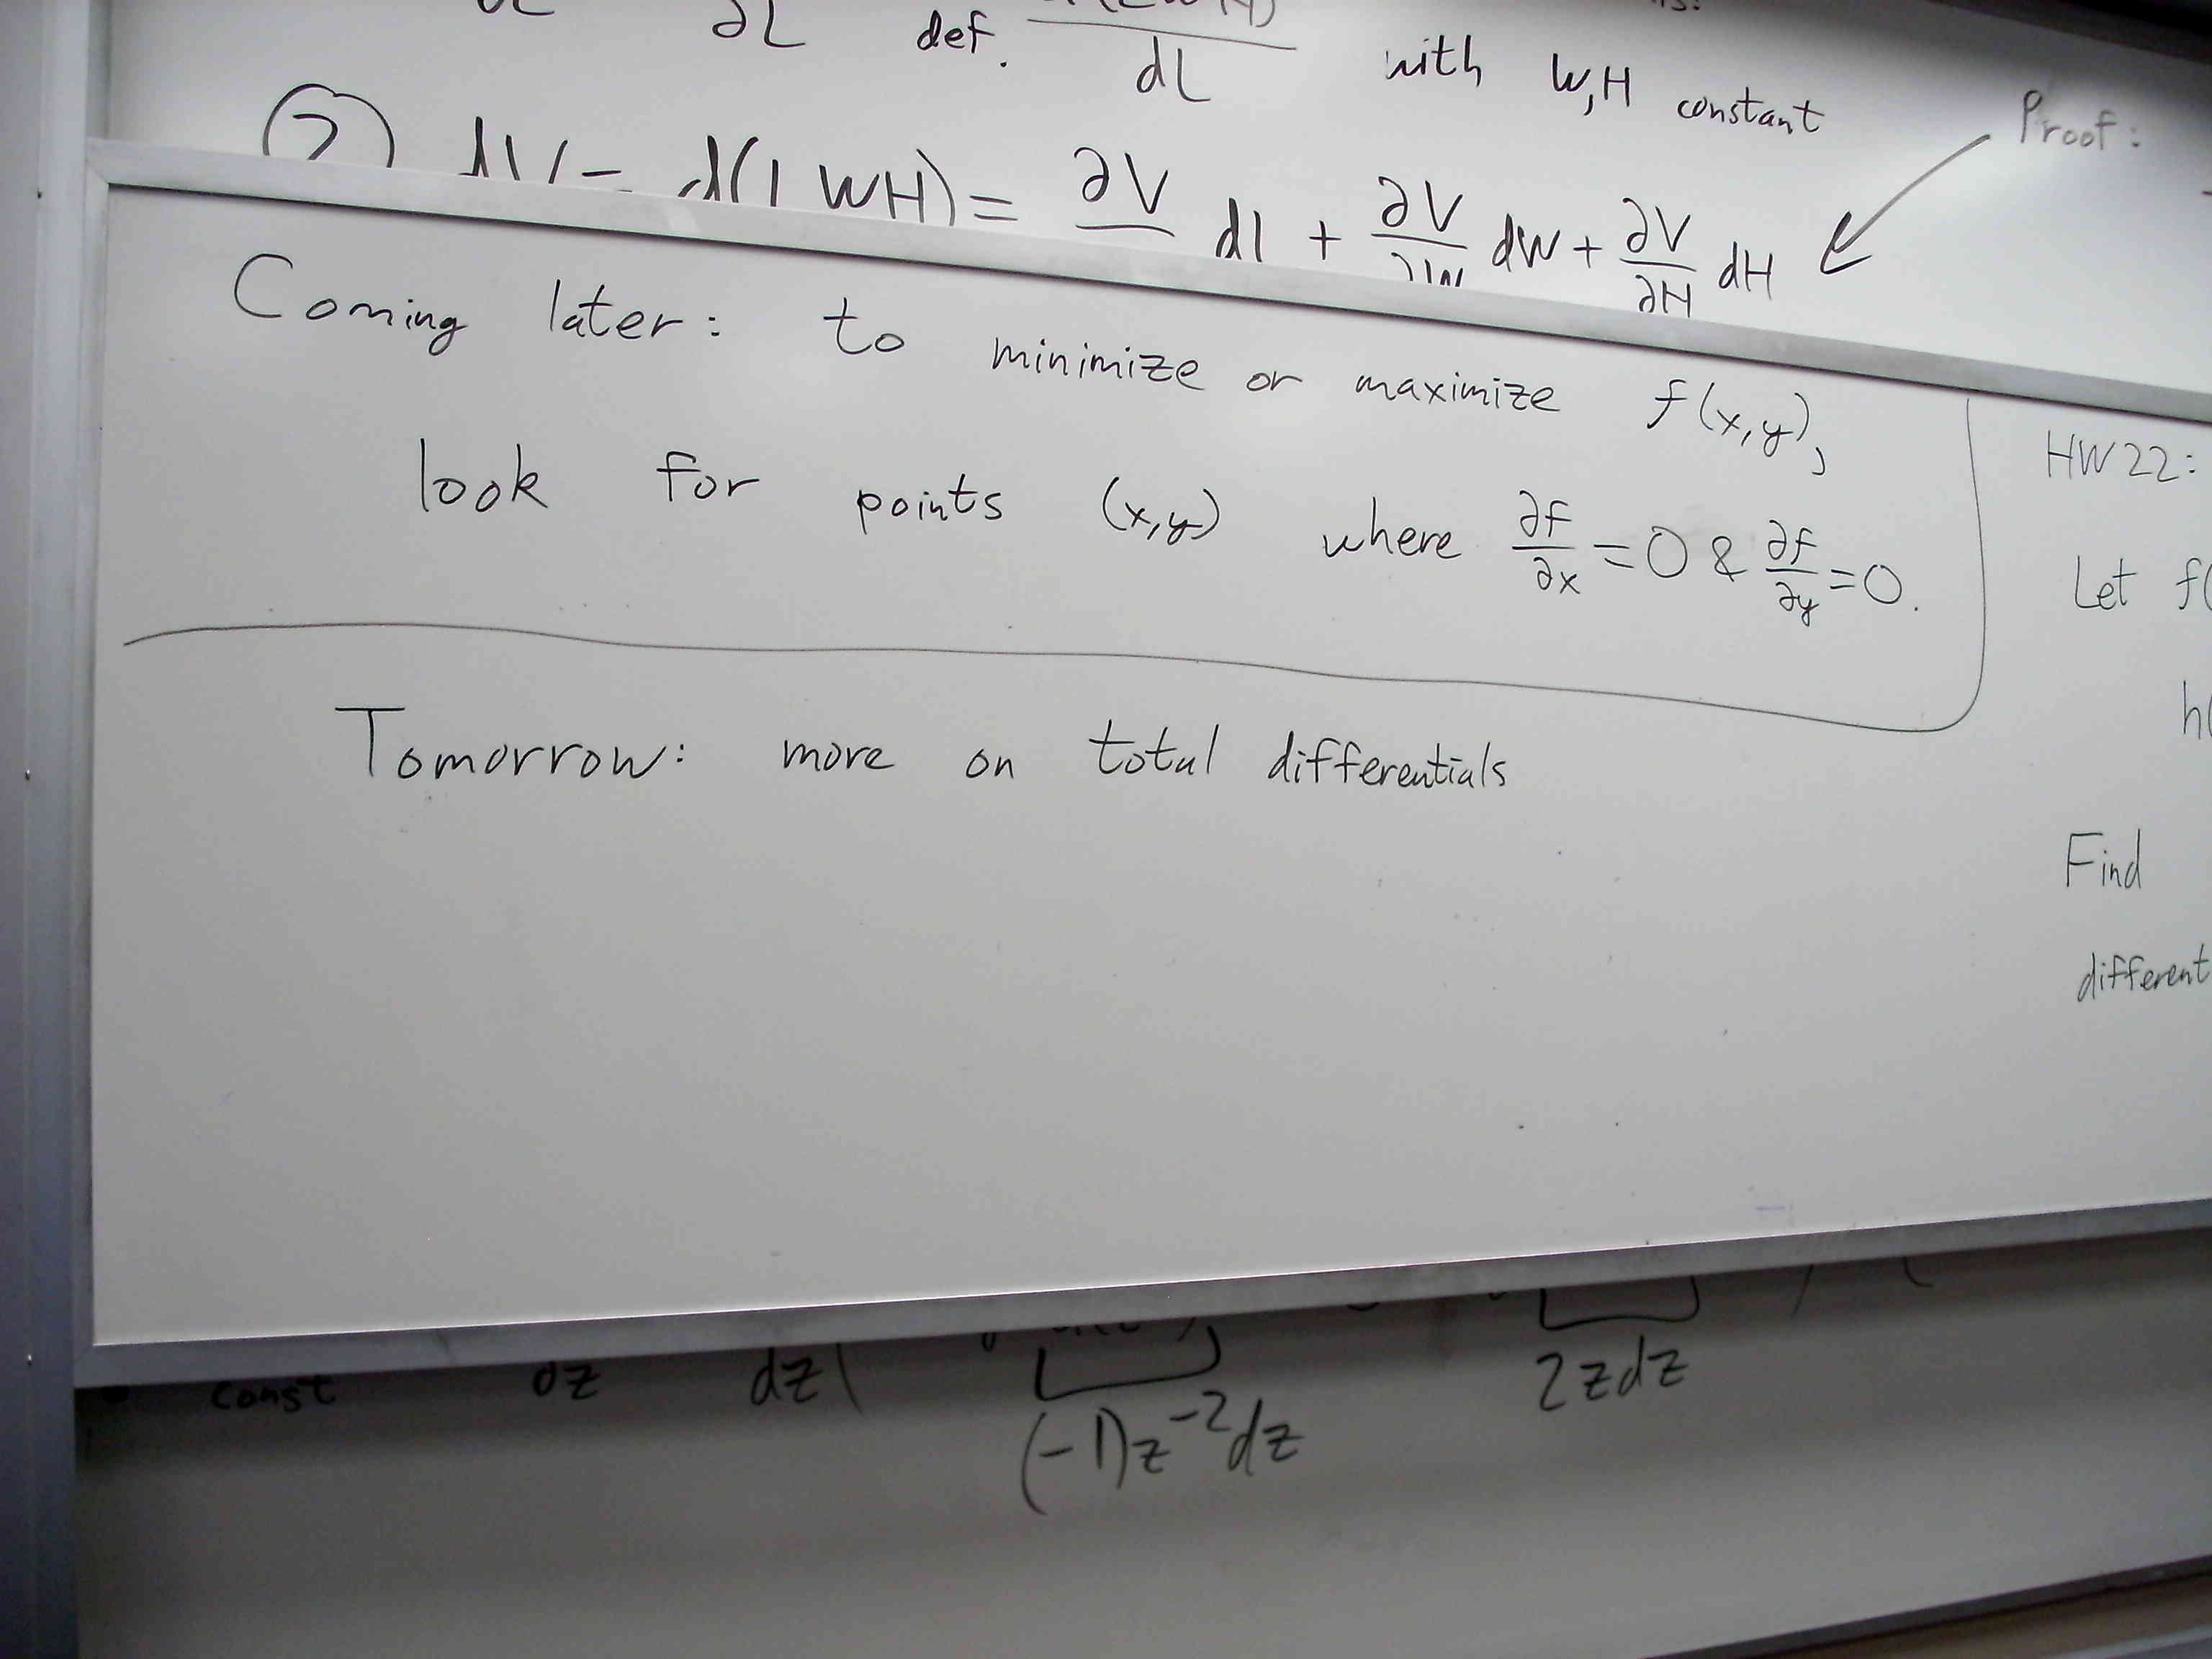 ∂L def. dL with W,H constant
Proof:
② dV = d(LWH) = ∂V dL + ∂V/∂W dW + ∂V/∂H dH
Coming later: to minimize or maximize f(x,y),
look for points (x,y) where ∂f/∂x = 0 & ∂f/∂y = 0.
Tomorrow: more on total differentials
HW22:
Let f(
h(
Find
different
const dz dz
(-1)z⁻²dz
2zdz